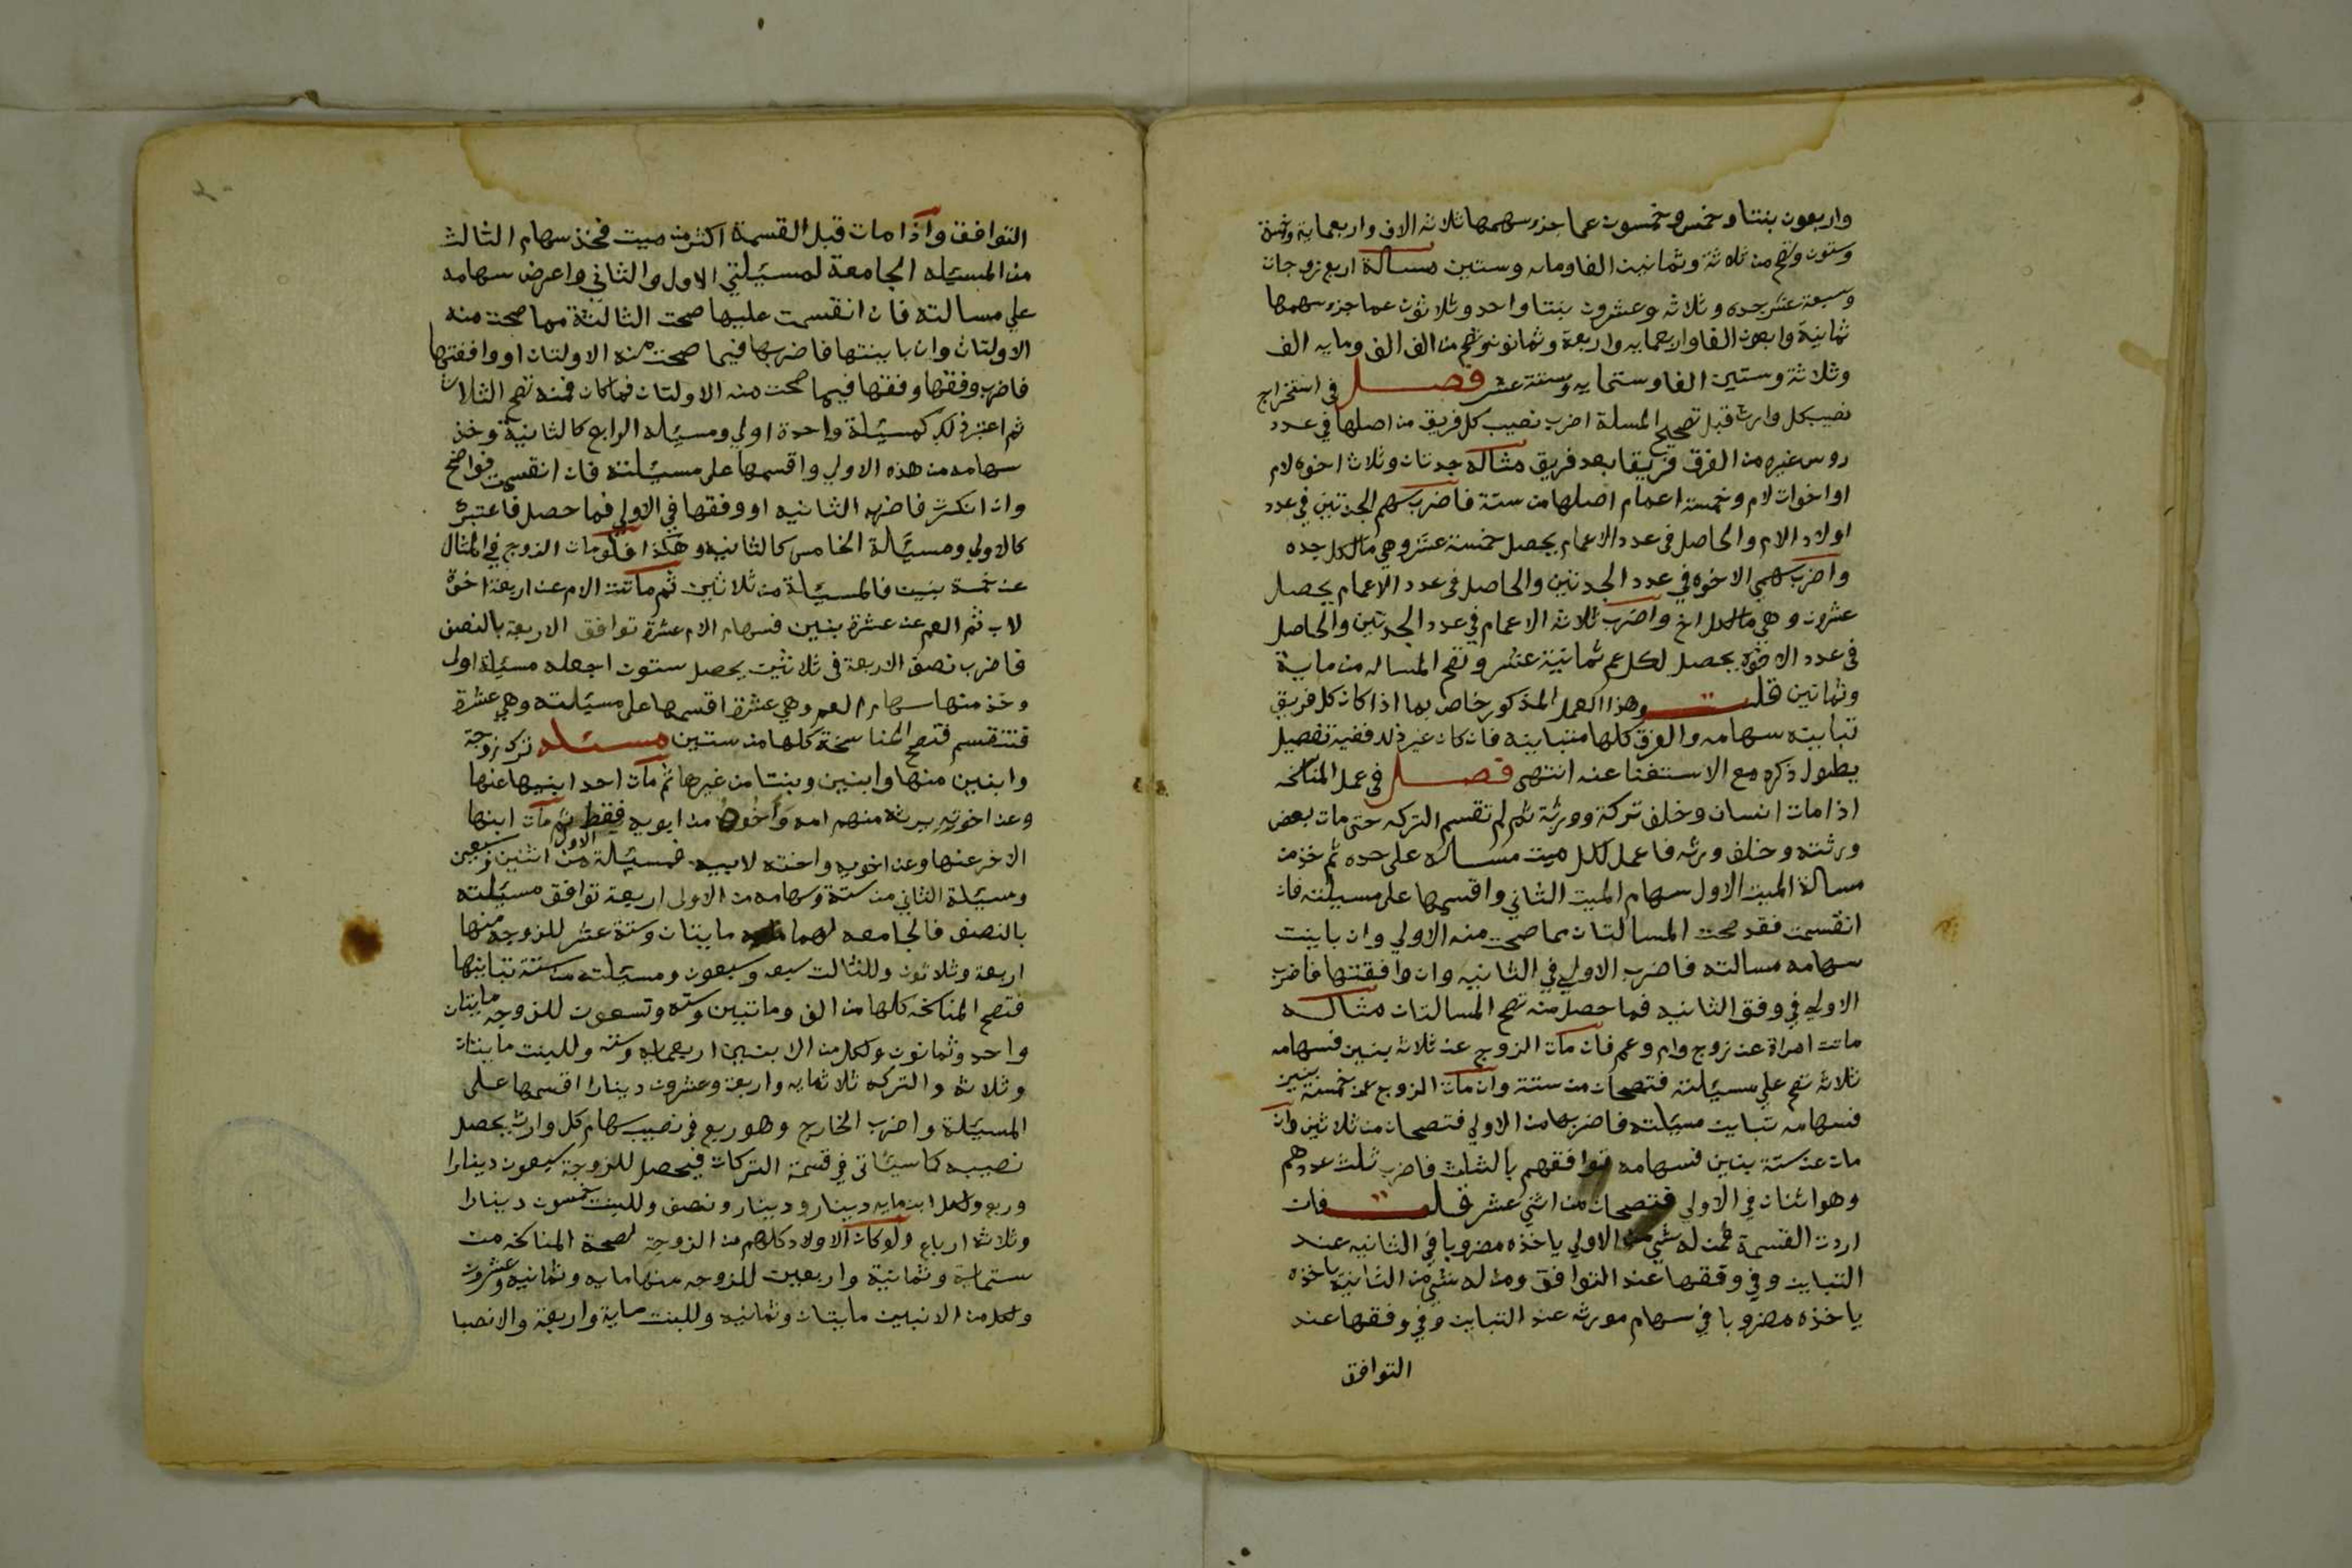 واربعون بنتا وخمس وخمسون عما جزء سهمها ثلاثه الاف واربعماية وخمسة
وستون وتصح من ثلاثة وثمانين الفا ومايه وستين مسالة اربع زوجات
وسبعة عشر جده وثلاثه وعشرون بنتا واحد وثلاثون عما جزء سهمها
ثمانية واربعون الفا واربعمايه واربعة وثمانون وتصح من الف الف ومايه الف
وثلاثة وستين الفا وستمايه وستة عشر فصل في استخراج
نصيب كل وارث قبل تصحيح المسلة اضرب نصيب كل فريق من اصلها في عدد
روس غيره من الفرق فريقا بعد فريق مثاله جدتان وثلاث اخوه لام
او اخوات لام وخمسة اعمام اصلها من ستة فاضرب سهم الجدتين في عدد
اولاد الام والحاصل في عدد الاعمام يحصل خمسة عشر وهي مالكل جده
واضرب سهمي الاخوه في عدد الجدتين والحاصل في عدد الاعمام يحصل
عشرون وهي مالكل اخ واضرب ثلاثه الاعمام في عدد الجدتين والحاصل
في عدد الاخوه يحصل لكل عم ثمانية عشر وتصح المساله من ماية
وثمانين قلت وهذا العمل المذكور خاص بما اذا كان كل فريق
تباينه سهامه والفرق كلها متباينه فان كان غير ذلك ففيه تفصيل
يطول ذكره مع الاستغنا عنه انتهى فصل في عمل المناسخه
اذا مات انسان وخلف تركة وورثة ثم لم تقسم التركه حتى مات بعض
ورثته وخلف ورثه فاعمل لكل ميت مساله على حده ثم خذ من
مسالة الميت الاول سهام الميت الثاني واقسمها على مسيلته فان
انقسمت فقد صحت المسالتان مما صحت منه الاولي وان باينت
سهامه مسالته فاضرب الاولي في الثانيه وان وافقتها فاضرب
الاولي في وفق الثانيه فما حصل منه تصح المسالتان مثاله
ماتت امراة عن زوج وام وعم فان مات الزوج عن ثلاثه بنين فسهامه
ثلاثه تصح علي مسيلته فتصحان من ستة وان مات الزوج عن خمسة بنين
فسهامه تباين مسيلته فاضربها من الاولي فتصحان من ثلاثين وان
مات عن ستة بنين فسهامه توافقهم بالثلث فاضرب ثلث عددهم
وهو اثنان في الاولي فتصحان من اثني عشر قلت فان
اردت القسمة فمن له شي من الاولي ياخذه مضروبا في الثانيه عند
التباين وفي وفقها عند التوافق ومن له شي من الثانية ياخذه
ياخذه مضروبا في سهام مورثه عند التباين وفي وفقها عند
التوافق
التوافق واذا مات قبل القسمة اكثر من ميت فخذ سهام الثالث
من المسيله الجامعة لمسيلتي الاول والثاني واعرض سهامه
علي مسالته فان انقسمت عليها صحت الثالثة مما صحت منه
الاولتان وان باينتها فاضربها فيما صحت منه الاولتان او وافقتها
فاضرب وفقها فيما صحت منه الاولتان فما كان فمنه تصح الثلاث
ثم اعتبر ذلك كمسيلة واحدة اولي ومسيله الرابع كالثانية وخذ
سهامه من هذه الاولي واقسمها على مسيلته فان انقسمت فواضح
وان انكسرت فاضرب الثانيه او وفقها في الاولي فما حصل فاعتبره
كالاولي ومسيلة الخامس كالثانيه وهكذا فلو مات الزوج في المثال
عن خمسة بنين فالمسيلة من ثلاثين ثم ماتت الام عن اربعة اخوة
لاب ثم العم عن عشرة بنين فسهام الام عشرة توافق الاربعة بالنصف
فاضرب نصف الاربعة في ثلاثين يحصل ستون اجعله مسيلة اولى
وخذ منها سهام العم وهي عشرة اقسمها على مسيلته وهي عشرة
فتنقسم فتصح المناسخة كلها من ستين مسئله ترك زوجة
وابنين منها وابنين وبنتا من غيرها ثم مات احد ابنيها عنها
وعن اخوته يرثه منهم امه واخوه من ابويه فقط ثم مات ابنها
الاخر عنها وعن اخويه واخته لابيه فمسيلة الاول من اثنين وسبعين
ومسيلة الثاني من ستة وسهامه من الاولى اربعة توافق مسيلته
بالنصف فالجامعه لهما مايتان وستة عشر للزوجه منها
اربعة وثلاثون وللثالث سبعه وسبعون ومسيلته من ستة تباينها
فتصح المناسخه كلها من الف ومايتين وسته وتسعون للزوجه مايتان
واحد وثمانون ولكل من الابنين اربعمايه وسته وللبنت مايتان
وثلاثه والتركه ثلاثمايه واربعة وعشرون دينارا اقسمها على
المسيلة واضرب الخارج وهو ربع في نصيب سهام كل وارث يحصل
نصيبه كما سيئاتي في قسمة التركات فيحصل للزوجة سبعون دينارا
وربع ولكل ابن مايه دينار ودينار ونصف وللبنت خمسون دينارا
وثلاثه ارباع ولو كان الاولاد كلهم من الزوجة لصحة المناسخه من
ستماية وثمانية واربعين للزوجه منها مايه وثمانيه وعشرون
ولكل من الابنين مايتان وثمانيه وللبنت ماية واربعة والانصبا